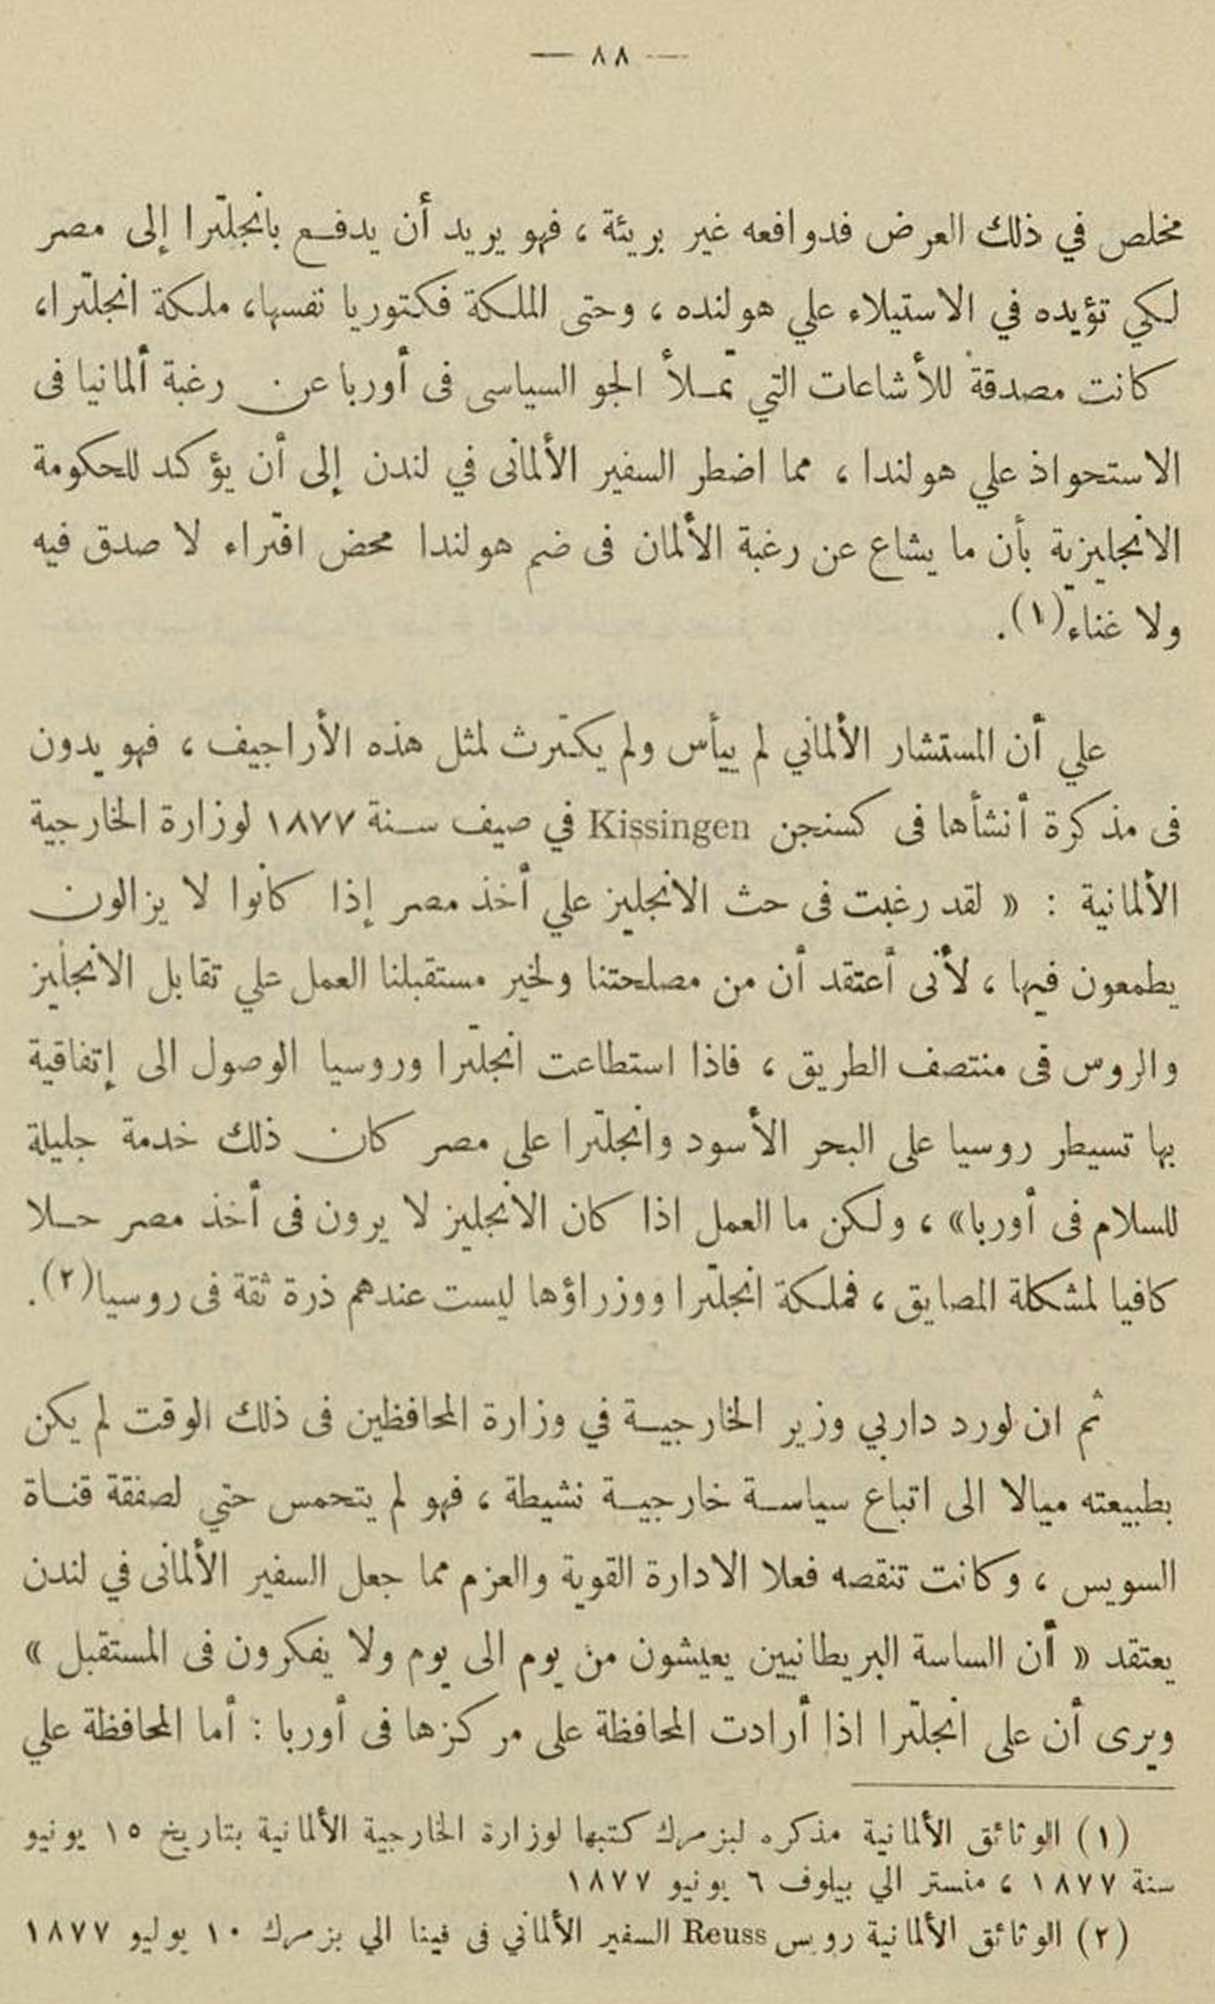 — ٨٨ —
مخلص في ذلك العرض فدوافعه غير بريئة ، فهو يريد أن يدفع بانجلترا إلى مصر
لكي تؤيده في الاستيلاء علي هولنده ، وحتى الملكة فكتوريا نفسها، ملكة انجلترا،
كانت مصدقة للأشاعات التي تملأ الجو السياسى فى أوربا عن رغبة ألمانيا فى
الاستحواذ علي هولندا ، مما اضطر السفير الألمانى في لندن إلى أن يؤكد للحكومة
الانجليزية بأن ما يشاع عن رغبة الألمان فى ضم هولندا محض افتراء لا صدق فيه
ولا غناء(١).
علي أن المستشار الألماني لم ييأس ولم يكترث لمثل هذه الأراجيف ، فهو يدون
فى مذكرة أنشأها فى كسنجن Kissingen في صيف سنة ١٨٧٧ لوزارة الخارجية
الألمانية : « لقد رغبت فى حث الانجليز علي أخذ مصر إذا كانوا لا يزالون
يطمعون فيها ، لأنى أعتقد أن من مصلحتنا ولخير مستقبلنا العمل علي تقابل الانجليز
والروس فى منتصف الطريق ، فاذا استطاعت انجلترا وروسيا الوصول الى إتفاقية
بها تسيطر روسيا على البحر الأسود وانجلترا على مصر كان ذلك خدمة جليلة
للسلام فى أوربا» ، ولكن ما العمل اذا كان الانجليز لا يرون فى أخذ مصر حلا
كافيا لمشكلة المضايق ، فملكة انجلترا ووزراؤها ليست عندهم ذرة ثقة فى روسيا(٢).
ثم ان لورد داربي وزير الخارجية في وزارة المحافظين فى ذلك الوقت لم يكن
بطبيعته ميالا الى اتباع سياسة خارجية نشيطة ، فهو لم يتحمس حتي لصفقة قناة
السويس ، وكانت تنقصه فعلا الادارة القوية والعزم مما جعل السفير الألمانى في لندن
يعتقد « أن الساسة البريطانيين يعيشون من يوم الى يوم ولا يفكرون فى المستقبل »
ويرى أن على انجلترا اذا أرادت المحافظة على مركزها فى أوربا : أما المحافظة علي
(١) الوثائق الألمانية مذكره لبزمرك كتبها لوزارة الخارجية الألمانية بتاريخ ١٥ يونيو
سنة ١٨٧٧ ، منستر الي بيلوف ٦ يونيو ١٨٧٧
(٢) الوثائق الألمانية رويس Reuss السفير الألماني فى فينا الي بزمرك ١٠ يوليو ١٨٧٧